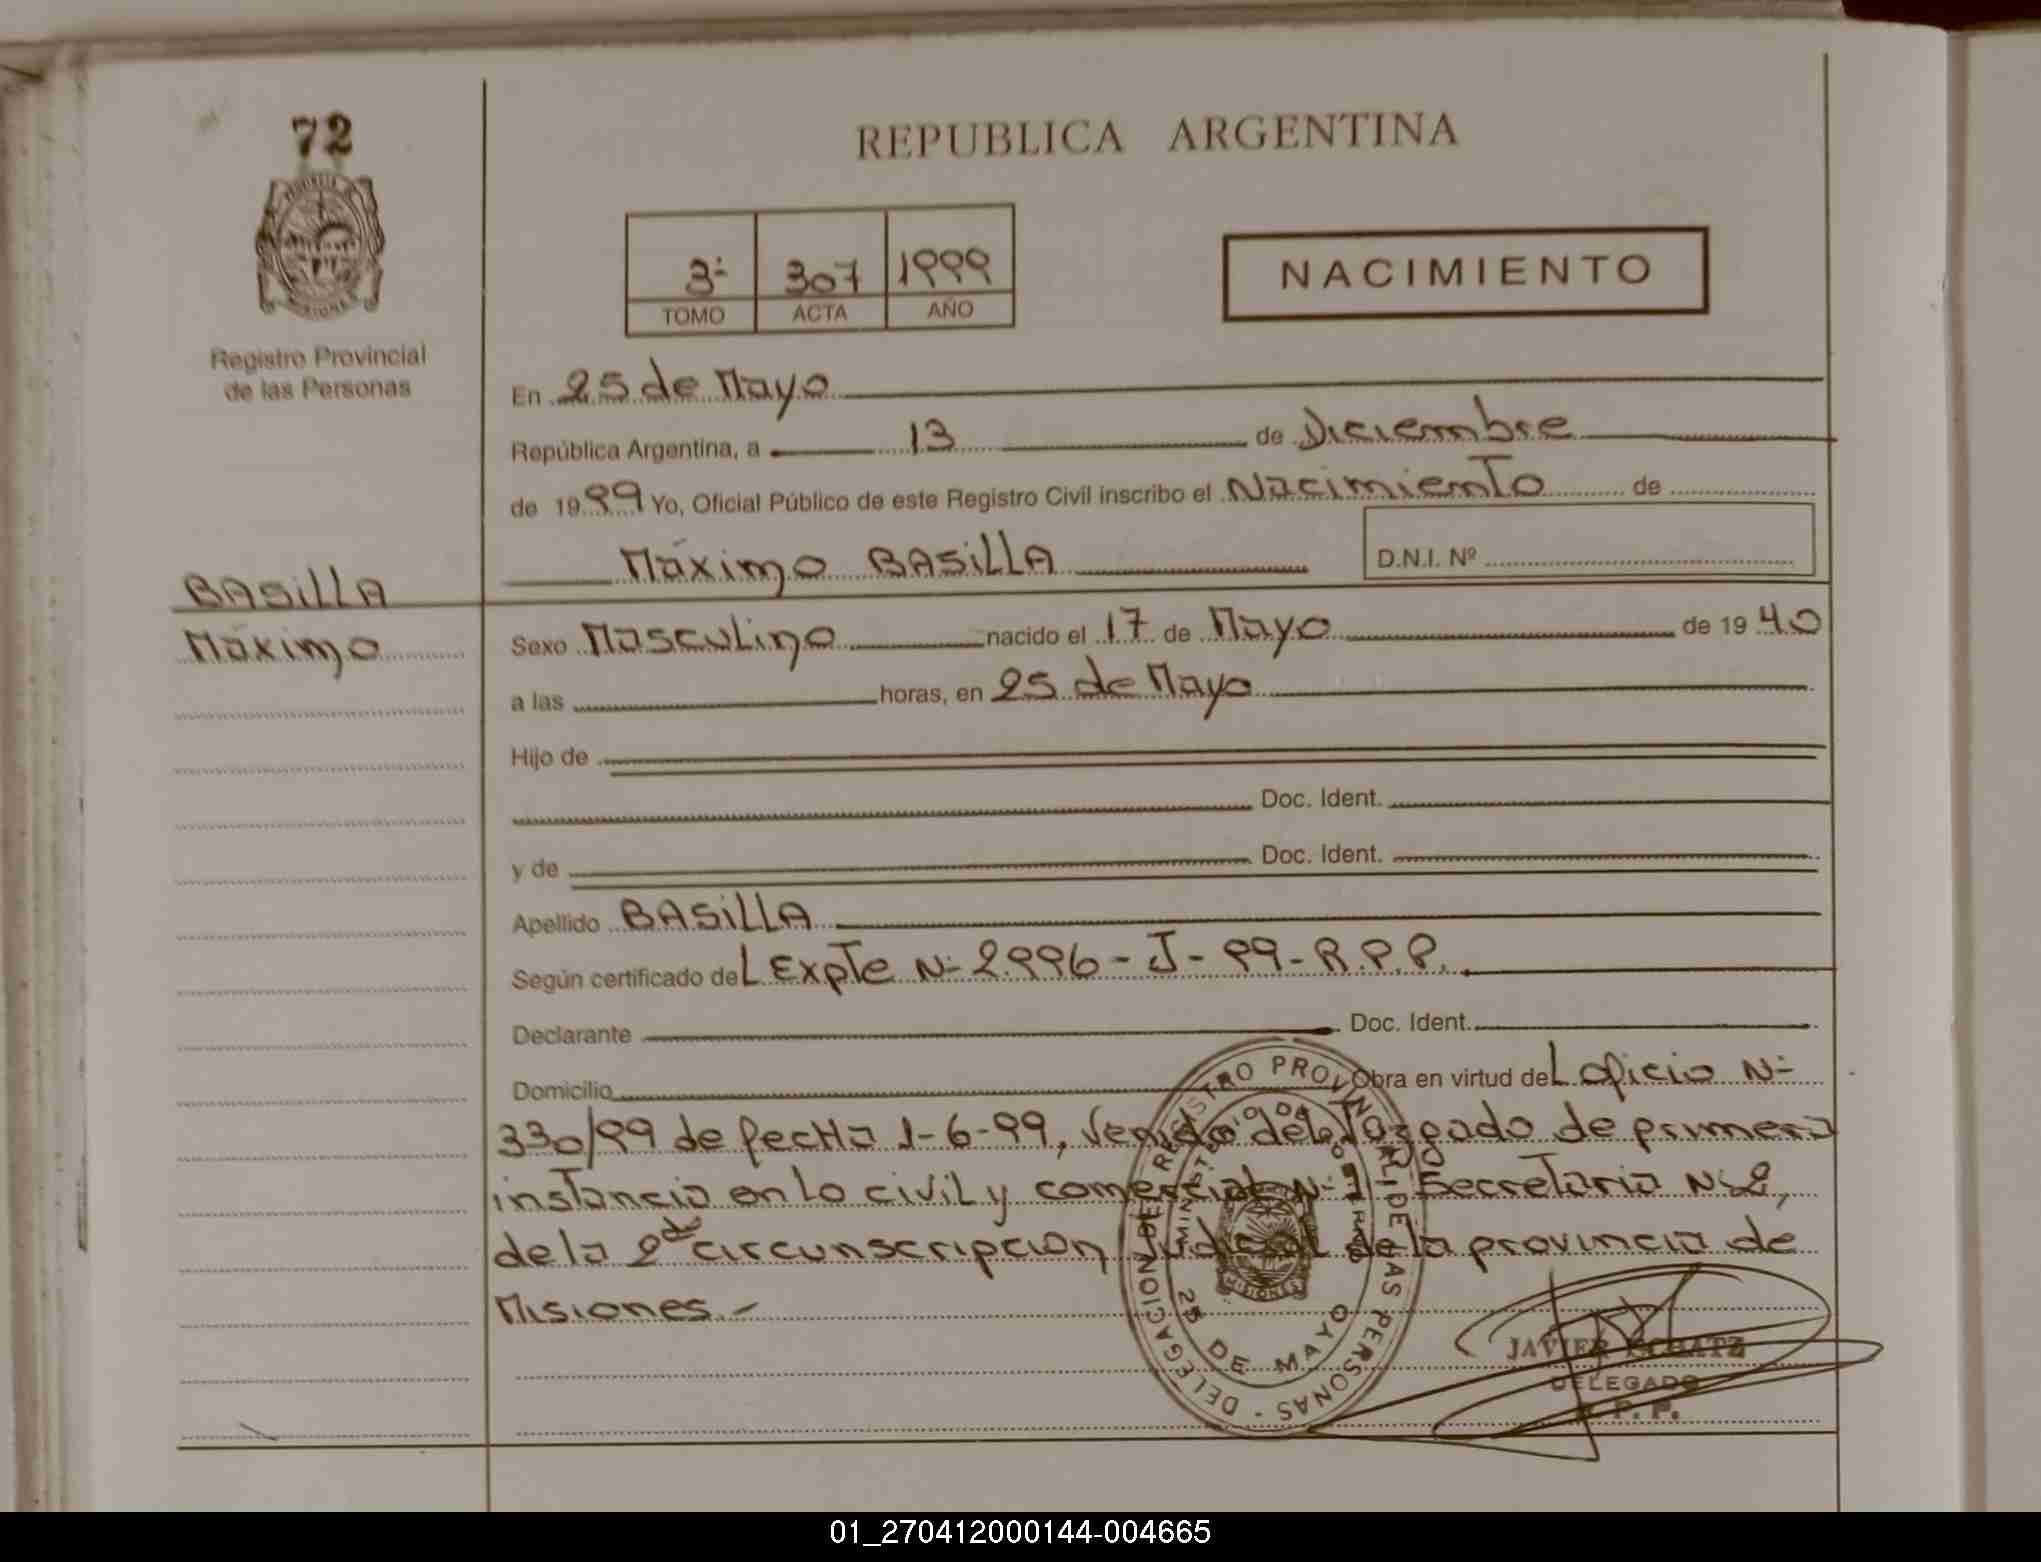 72
REPUBLICA ARGENTINA
3º 307 1999
TOMO ACTA AÑO
NACIMIENTO
Registro Provincial
de las Personas
En 25 de Mayo
República Argentina, a 13 de Diciembre
de 1999 Yo, Oficial Público de este Registro Civil inscribo el Nacimiento de
Máximo BASILLA D.N.I. Nº
BASILLA
Máximo
Sexo Masculino nacido el 17 de Mayo de 1940
a las horas, en 25 de Mayo
Hijo de
Doc. Ident.
y de Doc. Ident.
Apellido BASILLA
Según certificado del Expte Nº 2.996-J-99-R.P.P.
Declarante Doc. Ident.
Domicilio Obra en virtud del oficio Nº
330/99 de fecha 1-6-99, venido del Juzgado de primera
instancia en lo civil y comercial Nº 1 - Secretaria Nº 2,
de la 2da circunscripcion Judicial de la provincia de
Misiones.-
DELEGACION DEL REGISTRO PROVINCIAL DE LAS PERSONAS -
MINISTERIO DE GOBIERNO
MISIONES
25 DE MAYO
JAVIER
DELEGADO
P. P.
01_270412000144-004665